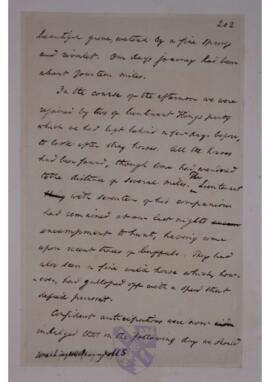 202
beautiful grove, watered by a fine spring
and rivulet. Our days journey had been
about fourteen miles.
In the course of the afternoon we were
rejoined by two of Lieutenant Kings party
which we had left behind a few days before,
to look after stray horses. All the horses
had been found, though some had wandered
to the distance of several miles. The Lieutenant
with seventeen of his companions
had remained at our last nights
encampment to hunt, having come
upon recent traces of buffalo. They had
also seen a fine wild horse which, how-
ever, had galloped off with a speed that
defied pursuit.
Confident anticipations were now
indulged that on the following day we should